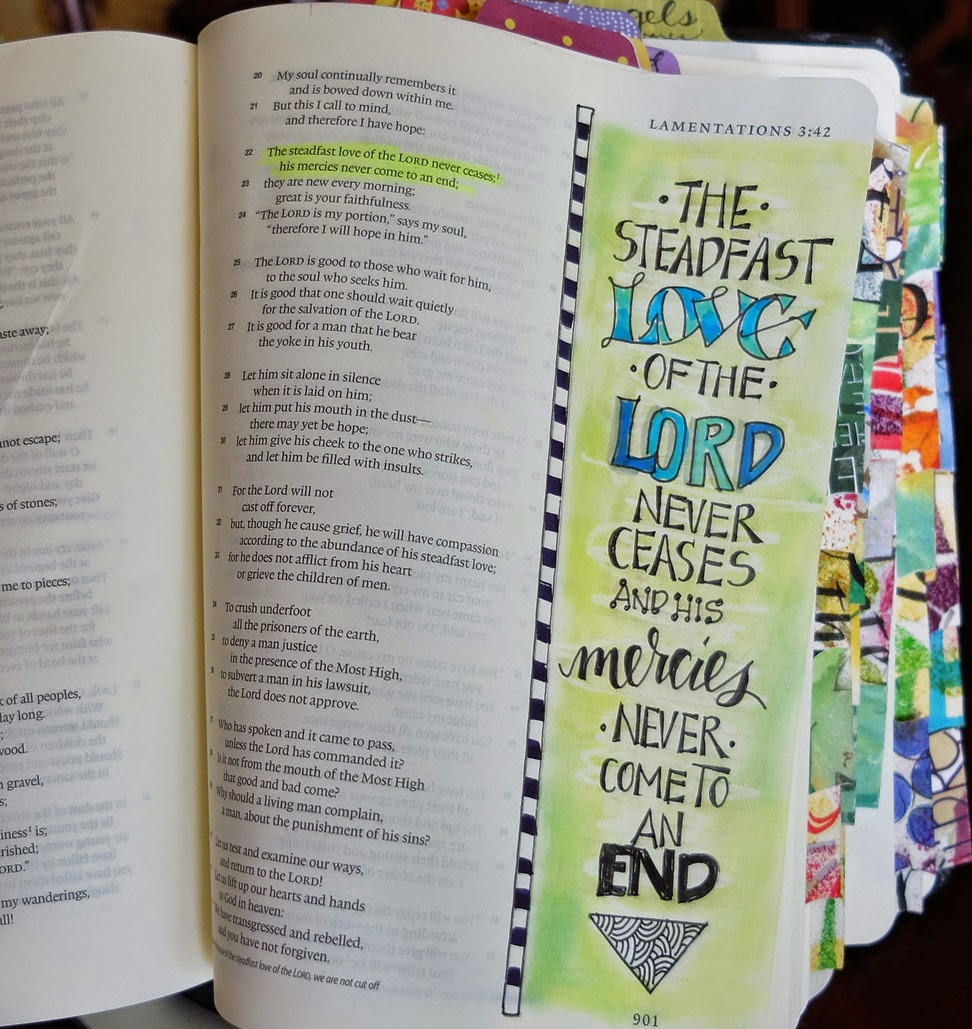 gels
aste away;
not escape;
s of stones;
me to pieces;
k of all peoples,
lay long.
wood.
gravel,
s;
iness¹ is;
rished;
ORD."
my wanderings,
all!
20 My soul continually remembers it
and is bowed down within me.
21 But this I call to mind,
and therefore I have hope:
22 The steadfast love of the LORD never ceases;¹
his mercies never come to an end;
23 they are new every morning;
great is your faithfulness.
24 "The LORD is my portion," says my soul,
"therefore I will hope in him."
25 The LORD is good to those who wait for him,
to the soul who seeks him.
26 It is good that one should wait quietly
for the salvation of the LORD.
27 It is good for a man that he bear
the yoke in his youth.
28 Let him sit alone in silence
when it is laid on him;
29 let him put his mouth in the dust—
there may yet be hope;
30 let him give his cheek to the one who strikes,
and let him be filled with insults.
31 For the Lord will not
cast off forever,
32 but, though he cause grief, he will have compassion
according to the abundance of his steadfast love;
33 for he does not afflict from his heart
or grieve the children of men.
34 To crush underfoot
all the prisoners of the earth,
35 to deny a man justice
in the presence of the Most High,
to subvert a man in his lawsuit,
the Lord does not approve.
Who has spoken and it came to pass,
unless the Lord has commanded it?
Is it not from the mouth of the Most High
that good and bad come?
Why should a living man complain,
a man, about the punishment of his sins?
Let us test and examine our ways,
and return to the LORD!
Let us lift up our hearts and hands
to God in heaven:
We have transgressed and rebelled,
and you have not forgiven.
of the steadfast love of the LORD, we are not cut off
LAMENTATIONS 3:42
·THE·
STEADFAST
LOVE
·OF THE·
LORD
NEVER
CEASES
AND HIS
mercies
·NEVER·
COME TO
AN
END
901